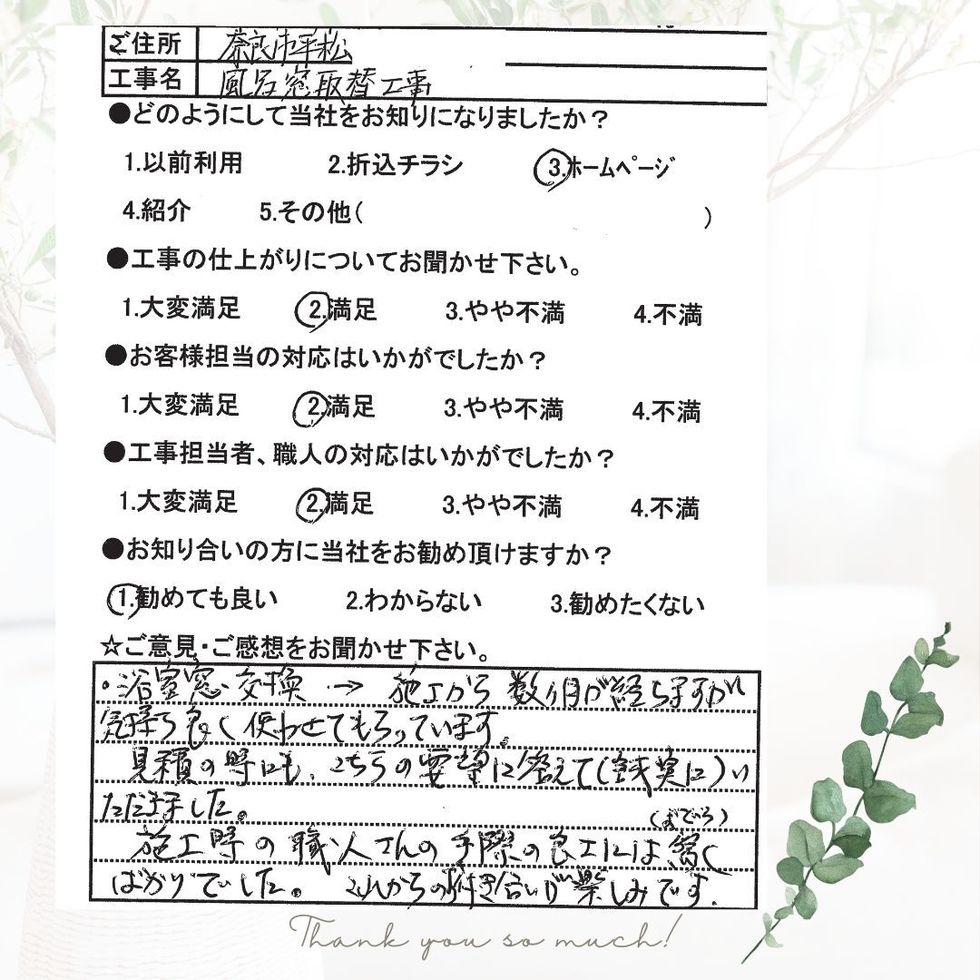 ご住所 奈良市平松
工事名 風呂窓取替工事
●どのようにして当社をお知りになりましたか？
1.以前利用 2.折込チラシ 3.ホームページ
4.紹介 5.その他( )
●工事の仕上がりについてお聞かせ下さい。
1.大変満足 2.満足 3.やや不満 4.不満
●お客様担当の対応はいかがでしたか？
1.大変満足 2.満足 3.やや不満 4.不満
●工事担当者、職人の対応はいかがでしたか？
1.大変満足 2.満足 3.やや不満 4.不満
●お知り合いの方に当社をお勧め頂けますか？
1.勧めても良い 2.わからない 3.勧めたくない
☆ご意見・ご感想をお聞かせ下さい。
・浴室窓交換 → 施工から数ヶ月が経ちますが
気持ち良く使わせてもらっています。
見積の時にも、こちらの要望に答えて(誠実に)い
ただきました。
施工時の職人さんの手際の良さには驚く
ばかりでした。これからの付き合いが楽しみです。
Thank you so much!